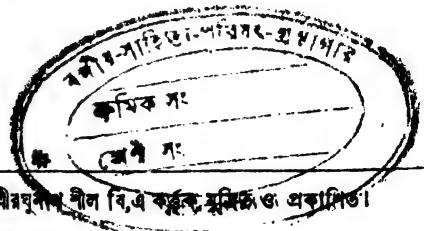 বঙ্গীয়-সাহিত্য-পরিষৎ-গ্রন্থাগার
ক্রমিক সং
শ্রেণী সং
শ্রীরঘুনাথ শীল বি,এ কর্ত্তৃক মুদ্রিত ও প্রকাশিত।